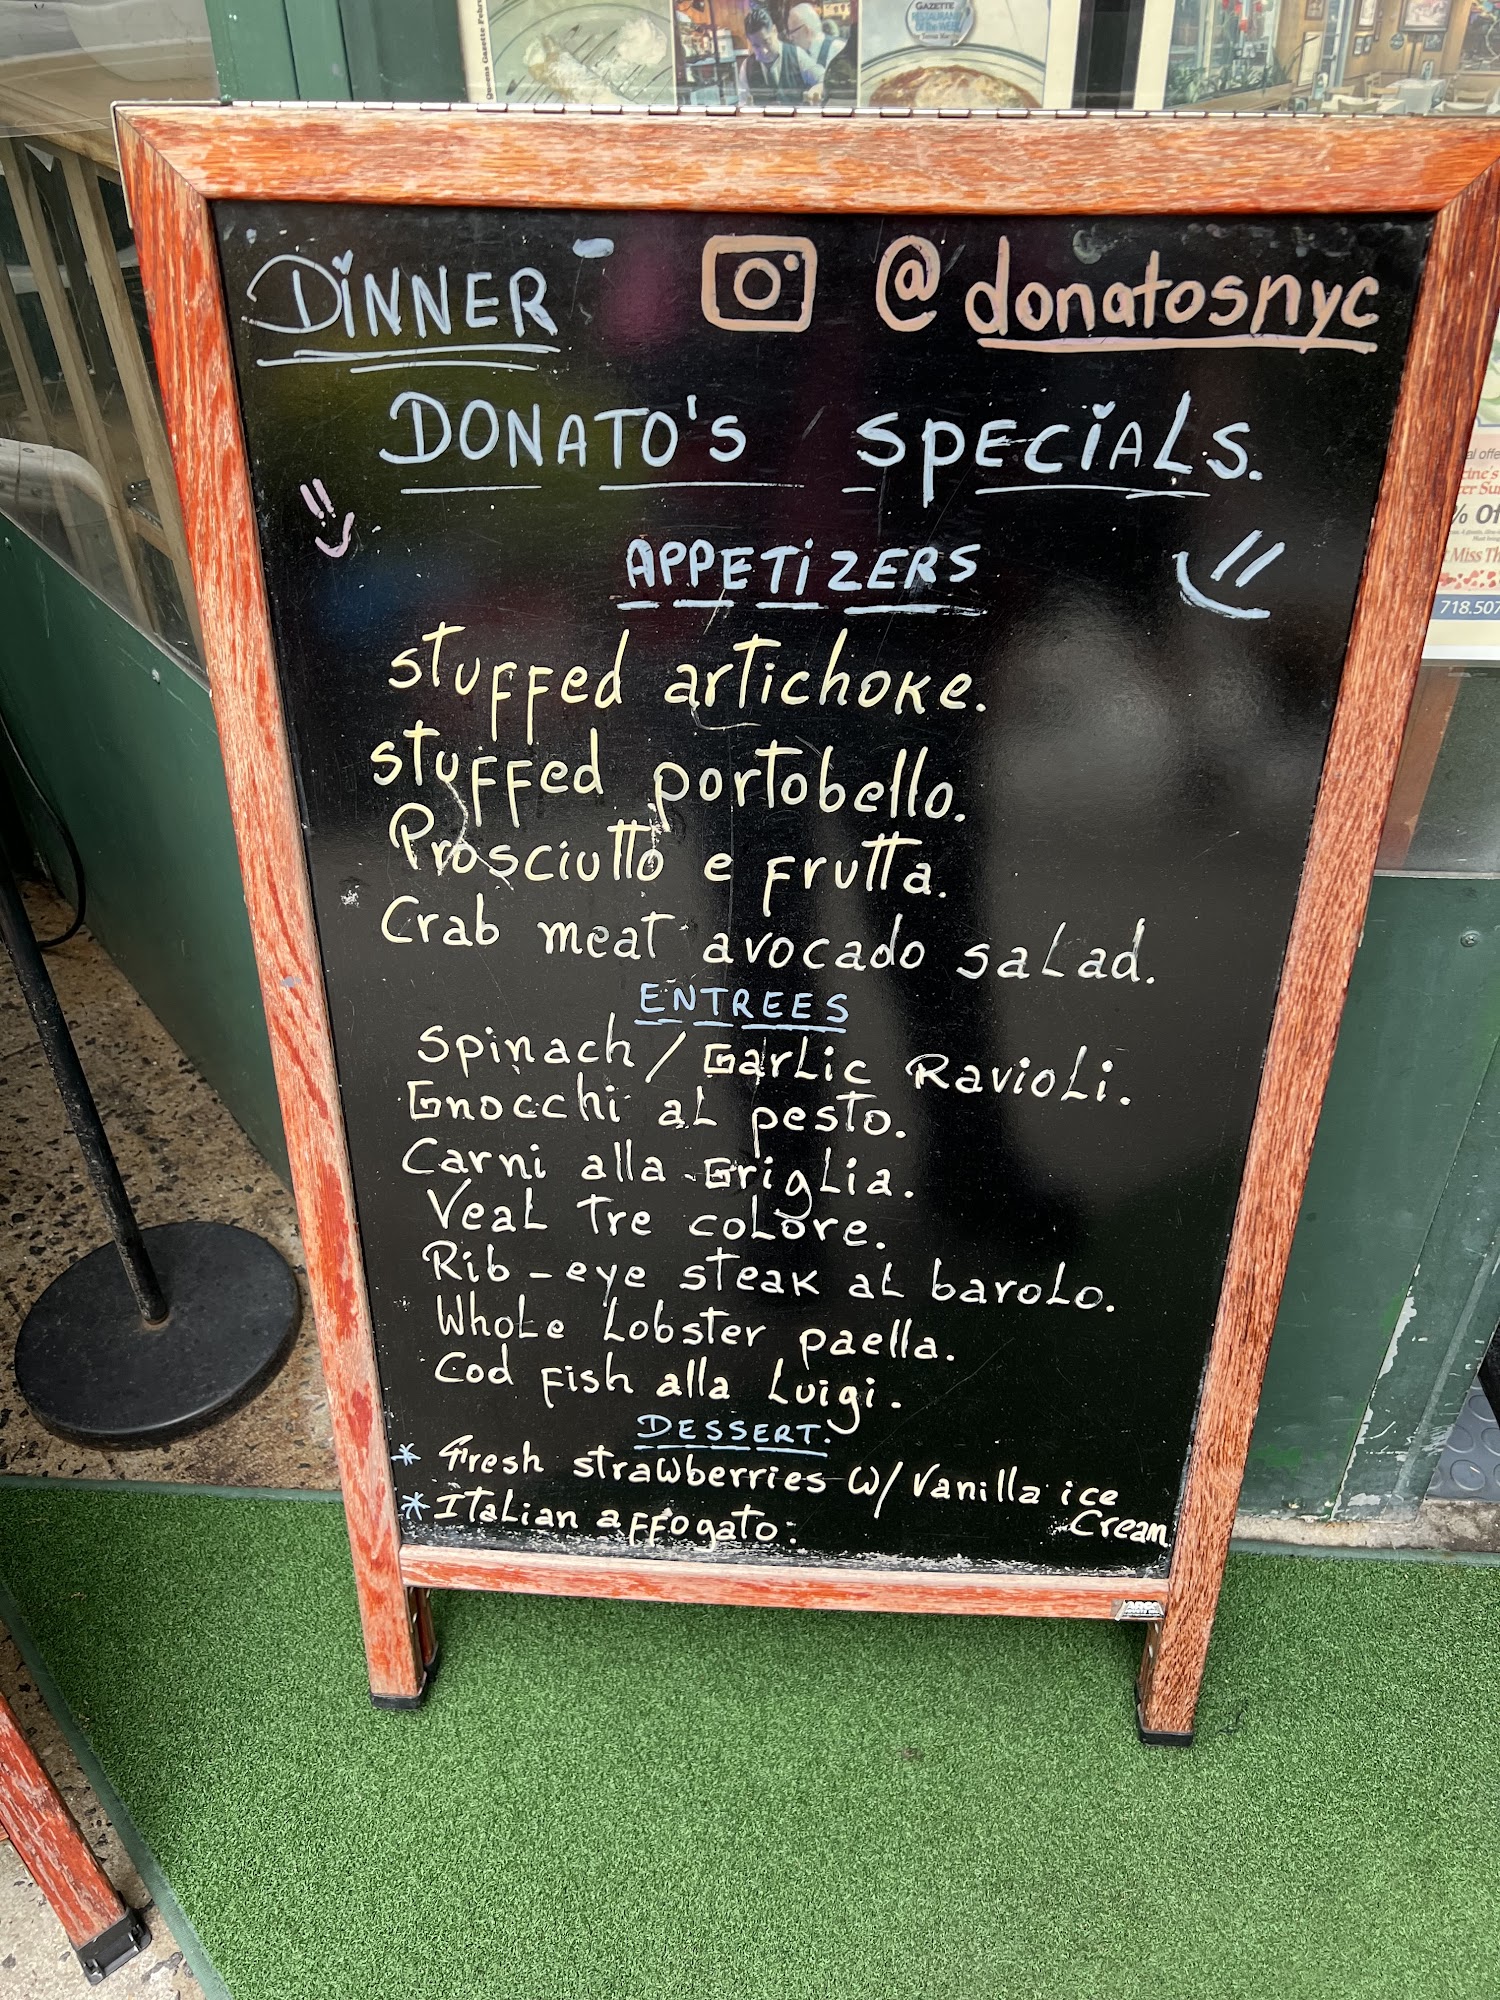 Queens Gazette
GAZETTE
DINNER @donatosnyc
DONATO'S SPECIALS.
APPETIZERS
stuffed artichoke.
stuffed portobello.
Prosciutto e frutta.
Crab meat avocado salad.
ENTREES
Spinach / Garlic Ravioli.
Gnocchi al pesto.
Carni alla Griglia.
Veal Tre colore.
Rib-eye steak al barolo.
Whole Lobster paella.
Cod fish alla Luigi.
DESSERT.
* Fresh strawberries w/ Vanilla ice
Cream
* Italian affogato.
Miss Th
718.507